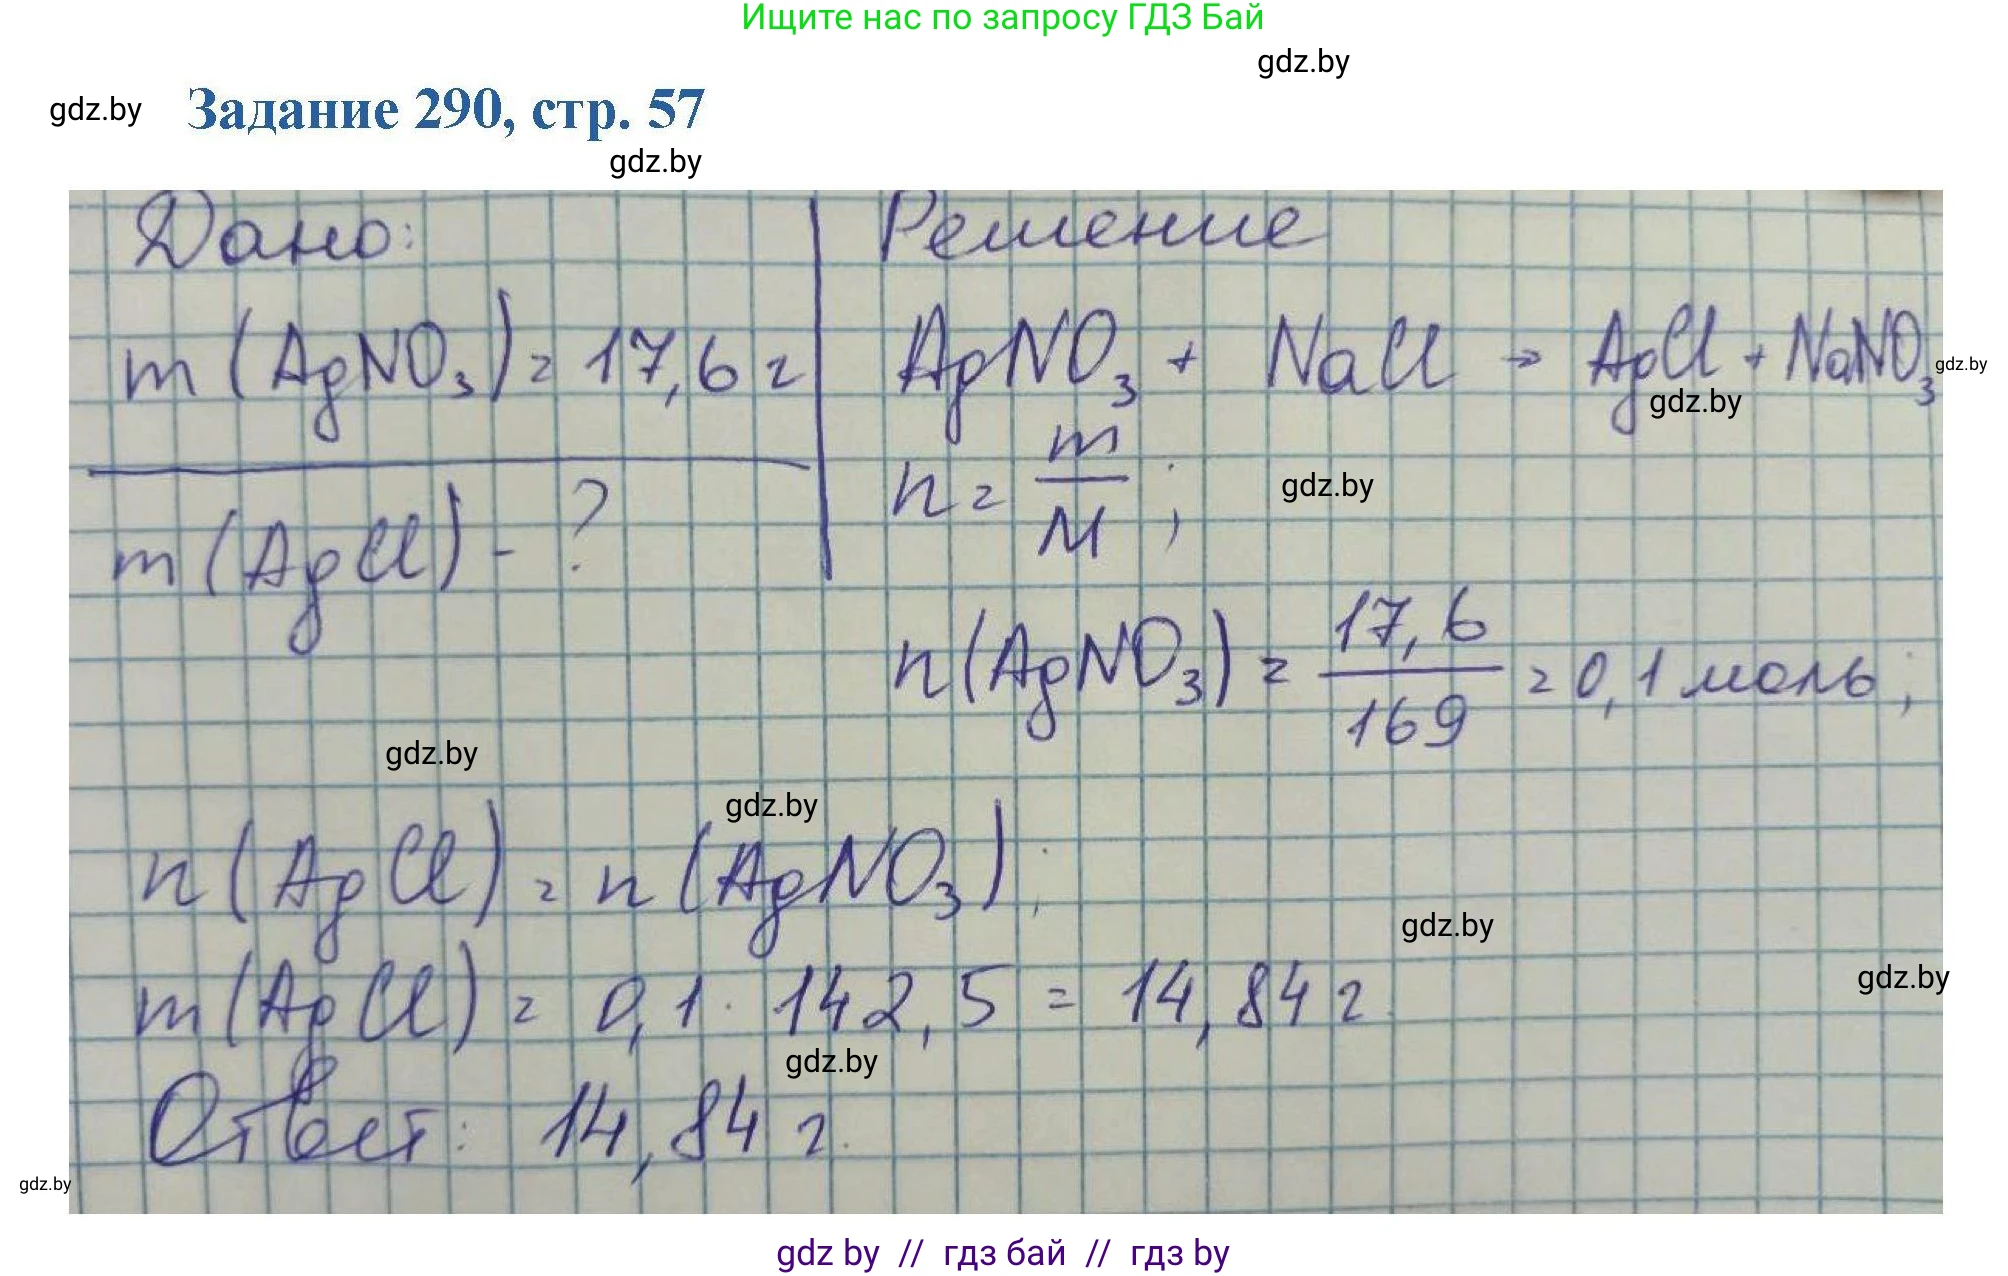 Ищите нас по запросу ГДЗ Бай
gdz.by
gdz.by Задание 290, стр. 57
gdz.by
Дано: Решение
m (AgNO₃) = 17,6 г AgNO₃ + NaCl → AgCl + NaNO₃
gdz.by
gdz.by
m (AgCl) - ? n = m/M ;
gdz.by
n(AgNO₃) = 17,6/169 = 0,1 моль ;
gdz.by
gdz.by
n (AgCl) = n (AgNO₃) ;
gdz.by
m (AgCl) = 0,1 · 142,5 = 14,84 г.
gdz.by
gdz.by
Ответ: 14,84 г.
gdz.by
gdz by // гдз бай // гдз by